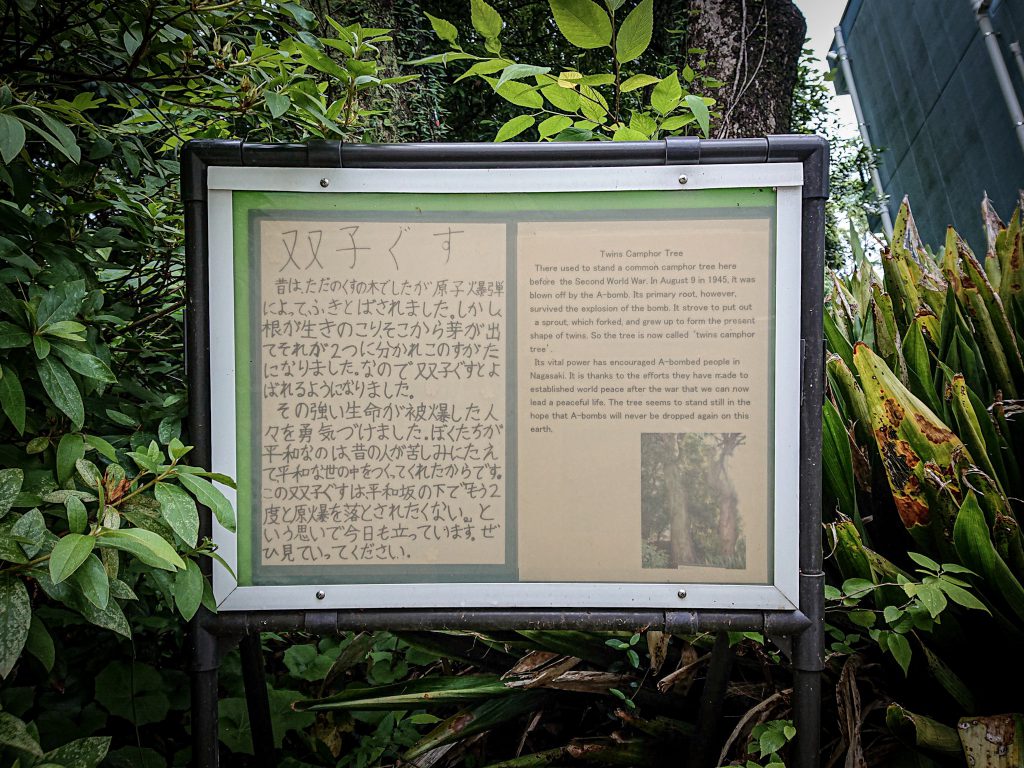 双子ぐす
昔は、ただのくすの木でしたが原子爆弾
によって、ふきとばされました。しかし
根が生きのこりそこから芽が出
てそれが2つに分かれこのすがた
になりました。なので双子ぐすとよ
ばれるようになりました。
その強い生命が被爆した人
々を勇気づけました。ぼくたちが
平和なのは昔の人が苦しみにたえ
て平和な世の中をつくってくれたからです。
この双子ぐすは平和坂の下で“もう2
度と原爆を落とされたくない。”と
いう思いで今日も立っています。ぜ
ひ見ていってください。
Twins Camphor Tree
There used to stand a common camphor tree here
before the Second World War. In August 9 in 1945, it was
blown off by the A-bomb. Its primary root, however,
survived the explosion of the bomb. It strove to put out
a sprout, which forked, and grew up to form the present
shape of twins. So the tree is now called 'twins camphor
tree'.
Its vital power has encouraged A-bombed people in
Nagasaki. It is thanks to the efforts they have made to
established world peace after the war that we can now
lead a peaceful life. The tree seems to stand still in the
hope that A-bombs will never be dropped again on this
earth.